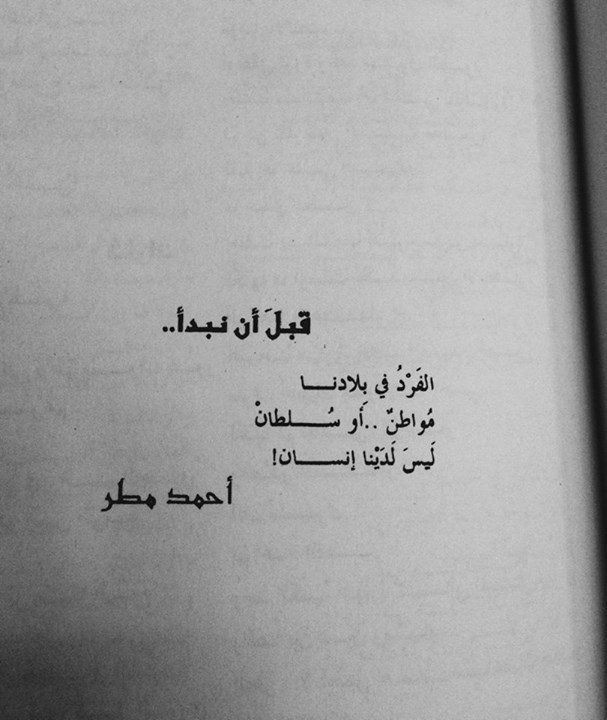 قبلَ أن نبدأ..
الفَرْدُ في بِلادنـــا
مُواطنٌ ..أو سُـــلطانْ
لَيسَ لَدَيْنا إنســـان!
أحمد مطر